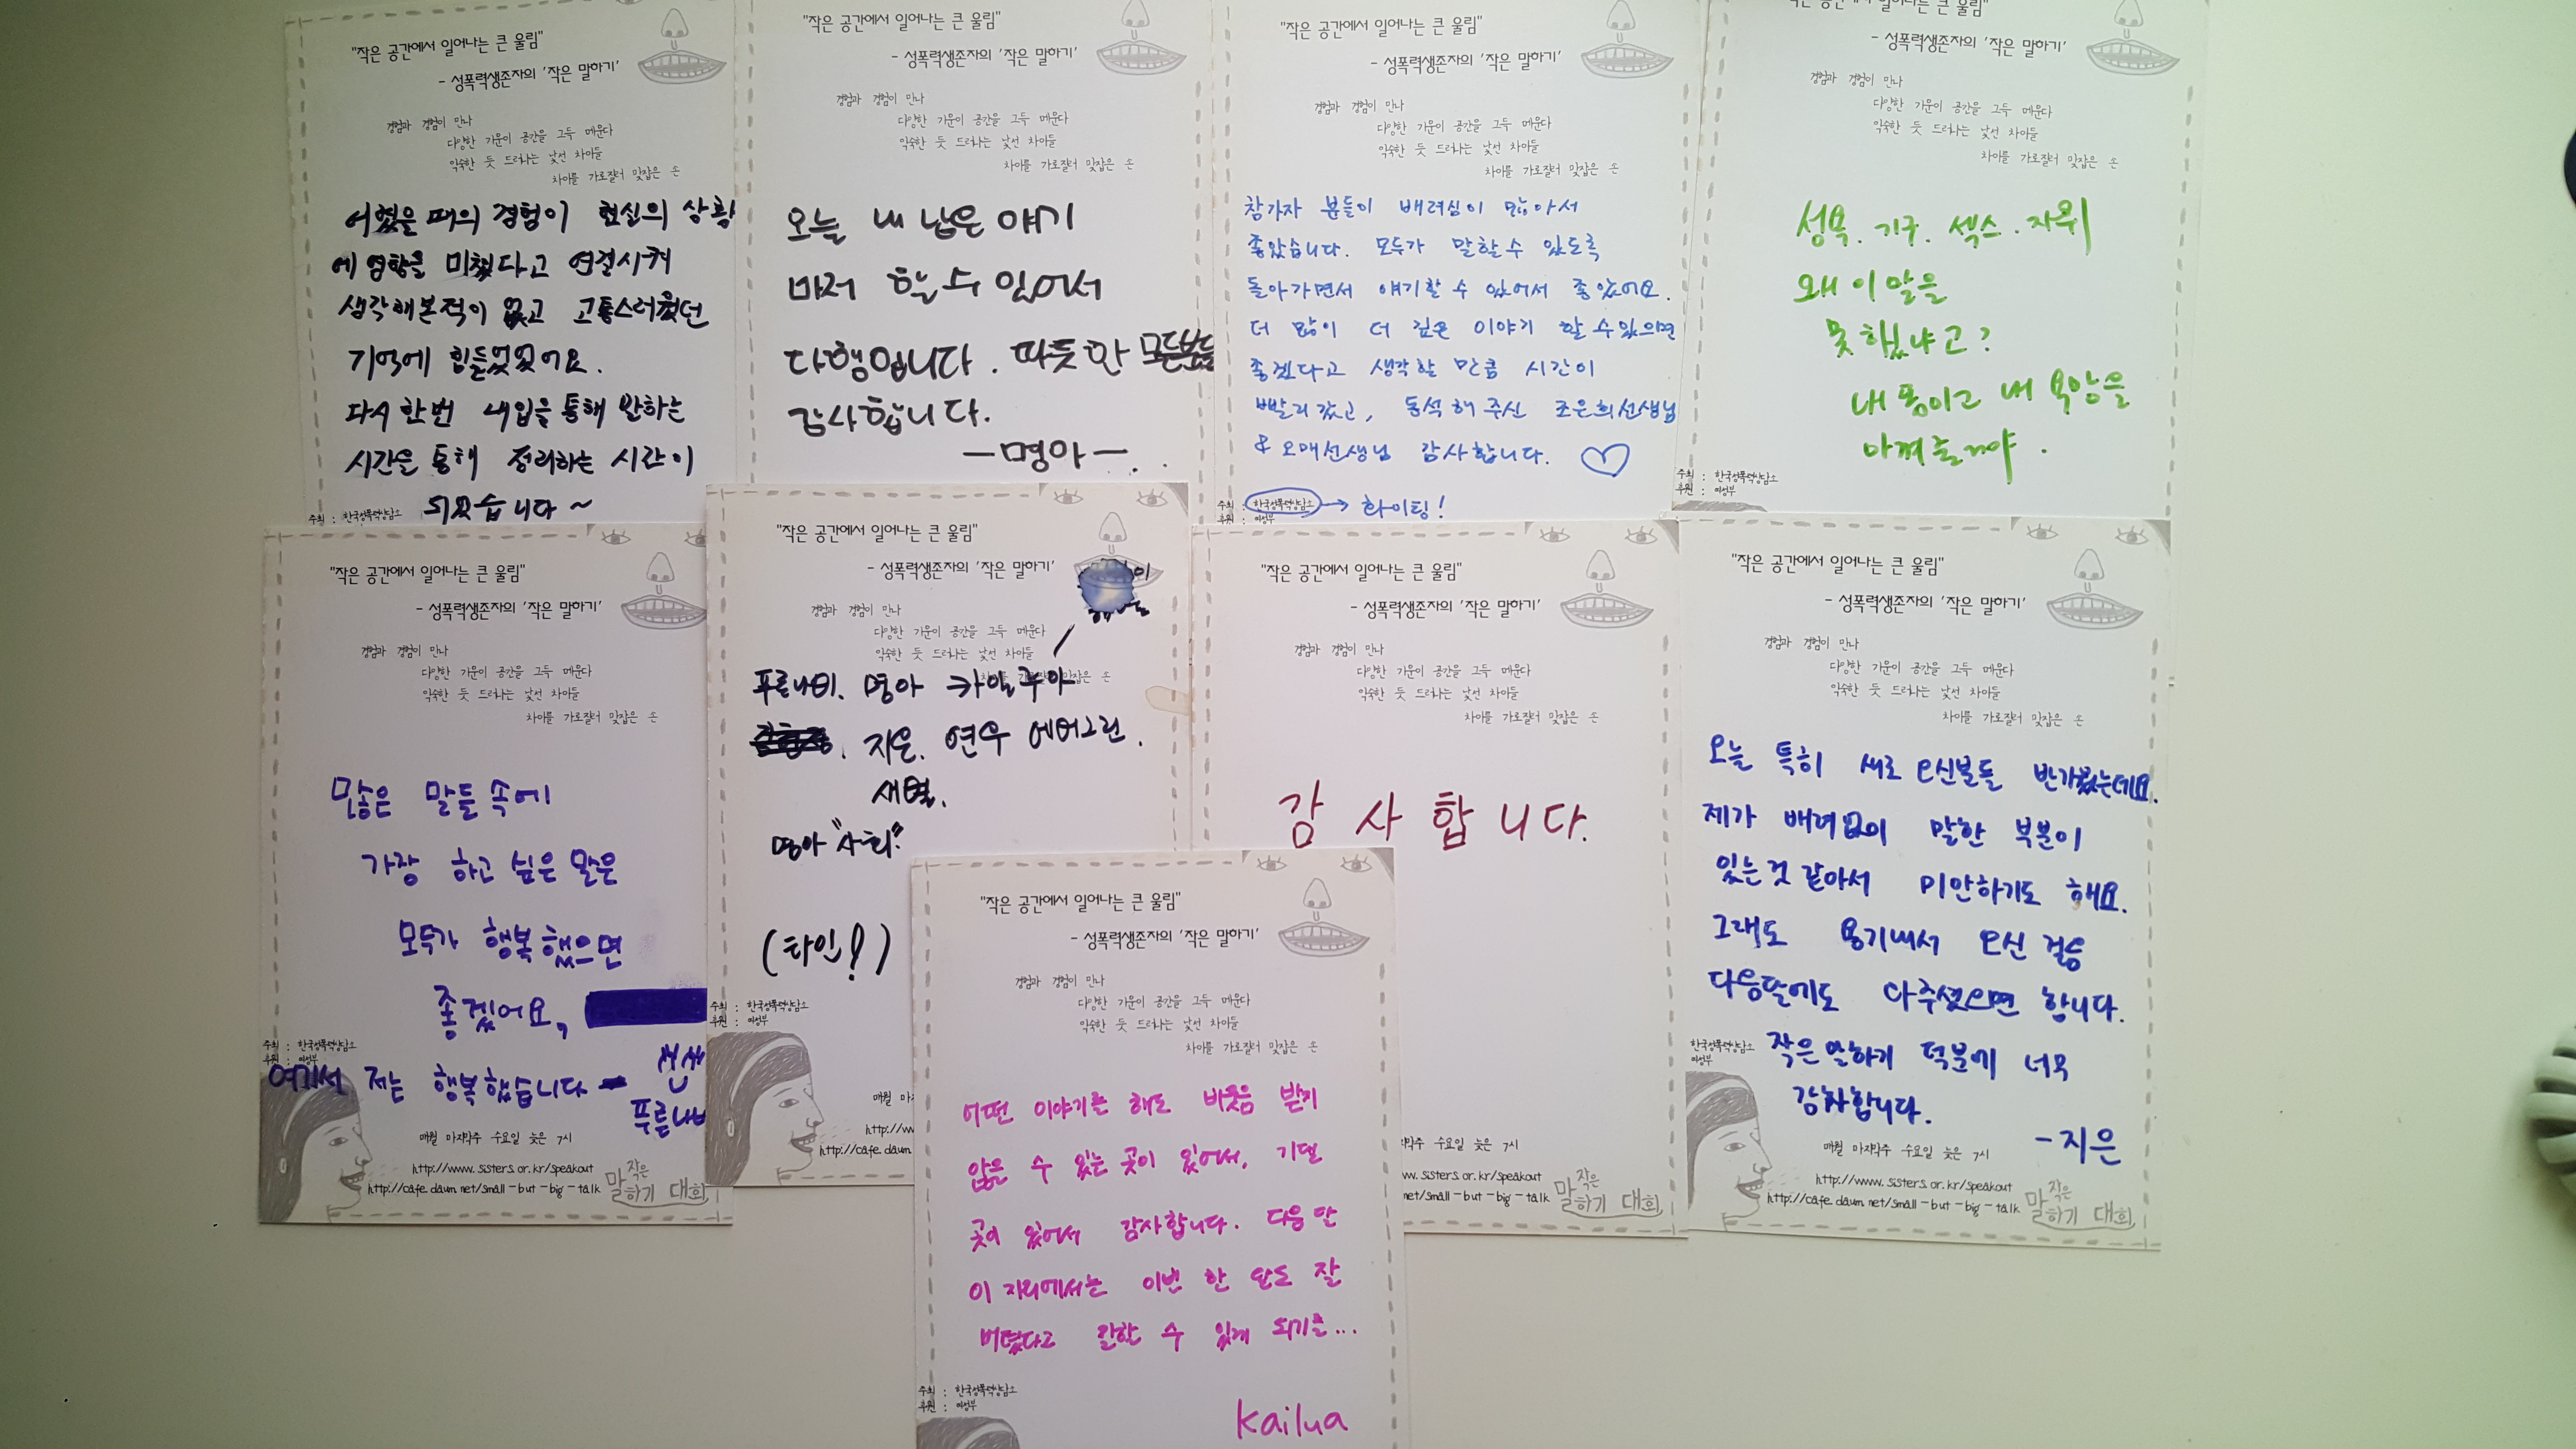 "작은 공간에서 일어나는 큰 울림"
- 성폭력생존자의 '작은 말하기'
경험과 경험이 만나
다양한 기운이 공간을 그득 메운다
익숙한 듯 드러나는 낯선 차이들
차이를 가로질러 맞잡은 손
어렸을 때의 경험이 현실의 상황
에 영향을 미쳤다고 연결시켜
생각해본적이 없고 고통스러웠던
기억에 힘들었었어요.
다시 한번 내입을 통해 말하는
시간을 통해 정리하는 시간이
되었습니다~
주최 : 한국성폭력상담소
"작은 공간에서 일어나는 큰 울림"
- 성폭력생존자의 '작은 말하기'
경험과 경험이 만나
다양한 기운이 공간을 그득 메운다
익숙한 듯 드러나는 낯선 차이들
차이를 가로질러 맞잡은 손
오늘 내 남은 얘기
마저 할 수 있어서
다행입니다. 따뜻한 모든분들
감사합니다.
-명아-.
"작은 공간에서 일어나는 큰 울림"
- 성폭력생존자의 '작은 말하기'
경험과 경험이 만나
다양한 기운이 공간을 그득 메운다
익숙한 듯 드러나는 낯선 차이들
차이를 가로질러 맞잡은 손
참가자 분들이 배려심이 많아서
좋았습니다. 모두가 말할 수 있도록
돌아가면서 얘기할 수 있어서 좋았어요.
더 많이 더 깊은 이야기 할 수 있으면
좋겠다고 생각할 만큼 시간이
빨리 갔고, 동석해 주신 조은희선생님
& 오매선생님 감사합니다. ♡
주최 : 한국성폭력상담소 → 화이팅!
후원 : 여성부
"작은 공간에서 일어나는 큰 울림"
- 성폭력생존자의 '작은 말하기'
경험과 경험이 만나
다양한 기운이 공간을 그득 메운다
익숙한 듯 드러나는 낯선 차이들
차이를 가로질러 맞잡은 손
성욕. 기구. 섹스. 자위
왜 이 말을
못 했냐고?
내 몸이고 내 욕망을
아껴줄거야.
주최 : 한국성폭력상담소
후원 : 여성부
"작은 공간에서 일어나는 큰 울림"
- 성폭력생존자의 '작은 말하기'
경험과 경험이 만나
다양한 기운이 공간을 그득 메운다
익숙한 듯 드러나는 낯선 차이들
차이를 가로질러 맞잡은 손
많은 말들 속에
가장 하고 싶은 말은
모두가 행복했으면
좋겠어요,
주최 : 한국성폭력상담소
후원 : 여성부
여기서 저는 행복했습니다
푸른나비
매월 마지막주 수요일 늦은 7시
http://www.sisters.or.kr/speakout
http://cafe.daum.net/small-but-big-talk
작은 말하기 대회
"작은 공간에서 일어나는 큰 울림"
- 성폭력생존자의 '작은 말하기'
경험과 경험이 만나
다양한 기운이 공간을 그득 메운다
익숙한 듯 드러나는 낯선 차이들
맞잡은 손
푸른나비. 명아 카일루아
지은. 연우 에버그린.
새벽.
명아 "사회"
(타인!)
주최 : 한국성폭력상담소
후원 : 여성부
매월 마
http://ww
http://cafe.daum
"작은 공간에서 일어나는 큰 울림"
- 성폭력생존자의 '작은 말하기'
경험과 경험이 만나
다양한 기운이 공간을 그득 메운다
익숙한 듯 드러나는 낯선 차이들
차이를 가로질러 맞잡은 손
감사합니다.
막주 수요일 늦은 7시
w.sisters.or.kr/speakout
net/small-but-big-talk
작은 말하기 대회
"작은 공간에서 일어나는 큰 울림"
- 성폭력생존자의 '작은 말하기'
경험과 경험이 만나
다양한 기운이 공간을 그득 메운다
익숙한 듯 드러나는 낯선 차이들
차이를 가로질러 맞잡은 손
오늘 특히 새로 오신분들 반가웠는데요.
제가 배려없이 말한 부분이
있는것 같아서 미안하기도 해요.
그래도 용기내서 오신 걸음
다음달에도 와주셨으면 합니다.
작은말하기 덕분에 너무
감사합니다.
-지은
한국성폭력상담소
여성부
매월 마지막주 수요일 늦은 7시
http://www.sisters.or.kr/speakout
http://cafe.daum.net/small-but-big-talk
작은 말하기 대회
"작은 공간에서 일어나는 큰 울림"
- 성폭력생존자의 '작은 말하기'
경험과 경험이 만나
다양한 기운이 공간을 그득 메운다
익숙한 듯 드러나는 낯선 차이들
차이를 가로질러 맞잡은 손
어떤 이야기를 해도 비웃음 받지
않을 수 있는 곳이 있어서, 기댈
곳이 있어서 감사합니다. 다음 달
이 자리에서는 이번 한 달도 잘
버텼다고 말할 수 있게 되기를...
주최 : 한국성폭력상담소
후원 : 여성부
Kailua